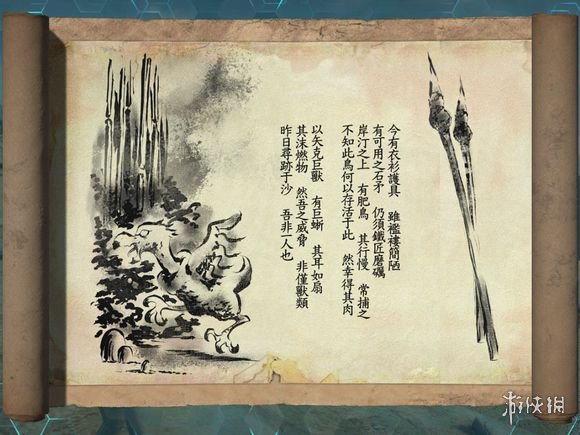 今有衣衫護具　雖襤褸簡陋
有可用之石矛　仍須鐵匠磨礪
岸汀之上　有肥鳥　其行慢　常捕之
不知此鳥何以存活于此　然幸得其肉
以矢克巨獸　有巨蜥　其耳如扇
其沫燃物　然吾之威脅　非僅獸類
昨日尋跡于沙　吾非一人也
游侠网